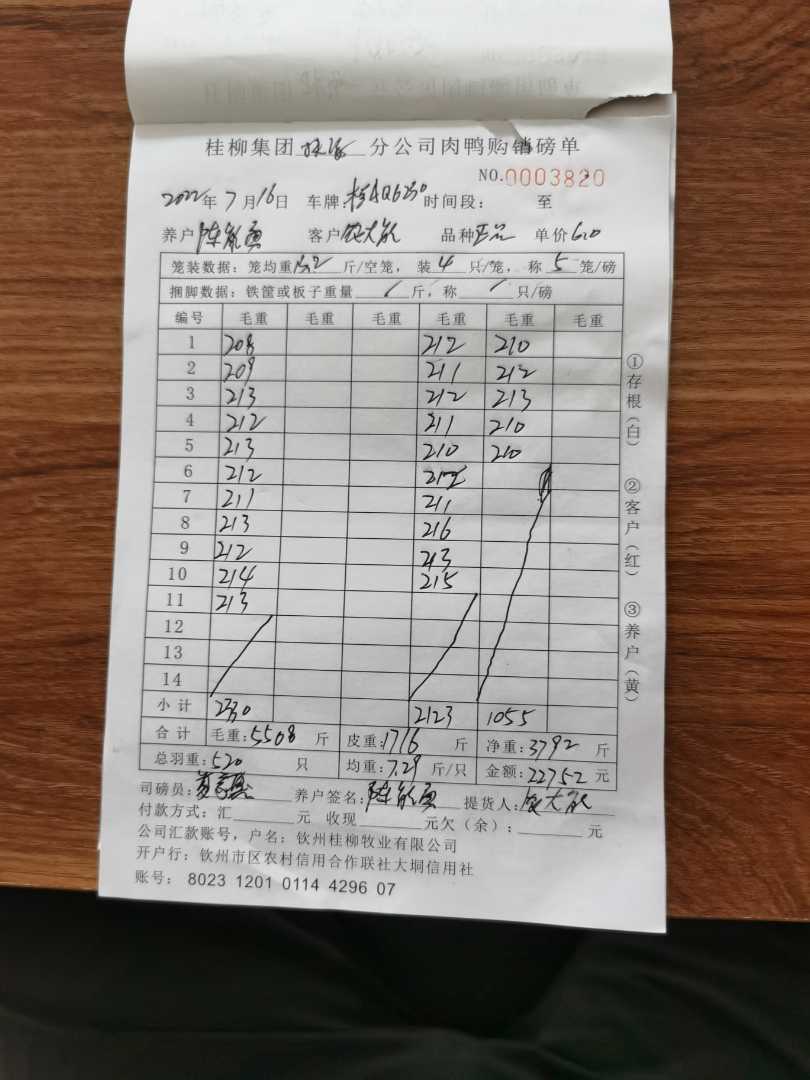 桂柳集团 分公司肉鸭购销磅单
NO.0003820
2022年7月16日 车牌: 时间段: 至
养户 陈 客户 大 品种 正品 单价 6.0
笼装数据:笼均重13.2斤/空笼,装4只/笼,称5笼/磅
捆脚数据:铁筐或板子重量/斤,称/只/磅
编号 毛重 毛重 毛重 毛重 毛重 毛重
1 208 212 210
2 209 211 212
3 213 212 213
4 212 211 210
5 213 210 210
6 212 212
7 211 211
8 213 216
9 212 213
10 214 215
11 213
12
13
14
小计 2330 2123 1055
合计 毛重:5508斤 皮重:1716斤 净重:3792斤
总羽重:520只 均重:7.29斤/只 金额:22752元
司磅员: 养户签名:陈 提货人: 大
付款方式:汇 元 收现 元欠(余): 元
公司汇款账号,户名:钦州桂柳牧业有限公司
开户行:钦州市区农村信用合作联社大垌信用社
账号: 8023 1201 0114 4296 07
①存根(白) ②客户(红) ③养户(黄)